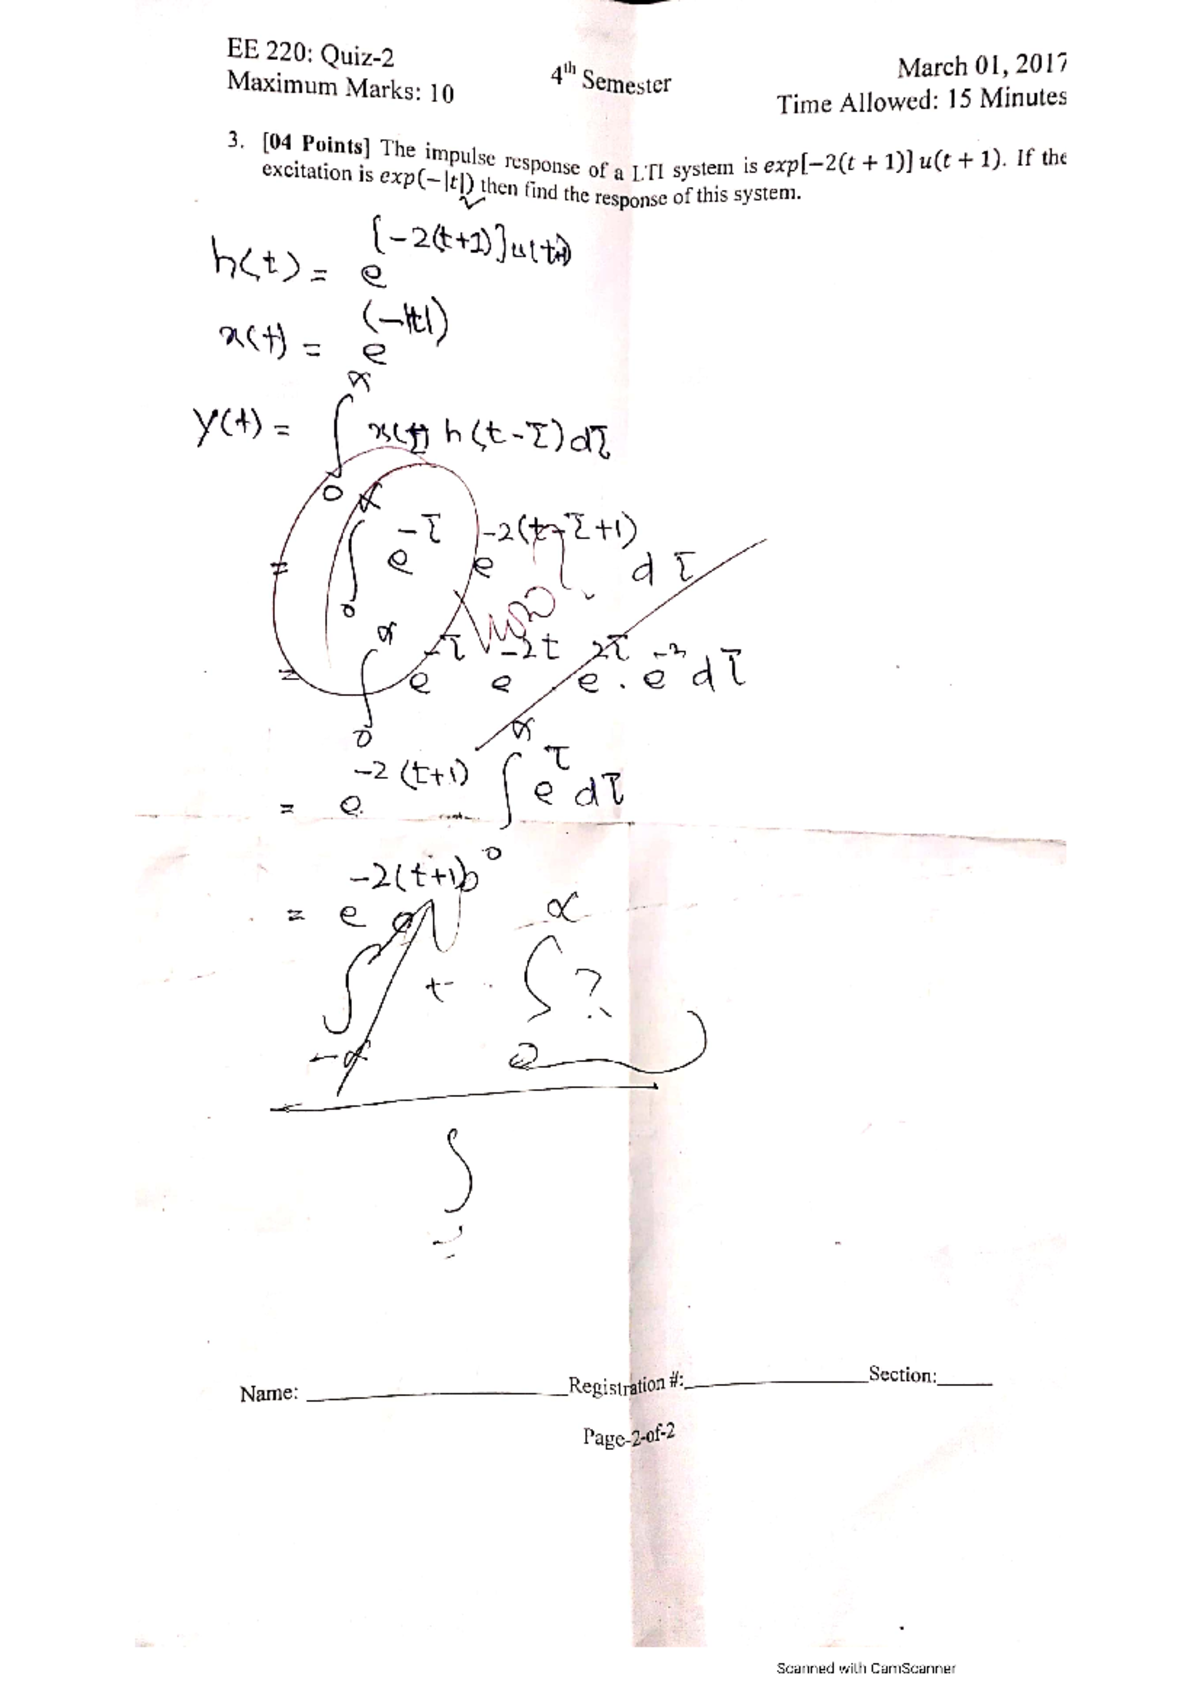 EE 220: Quiz-2
Maximum Marks: 10
4th Semester
March 01, 2017
Time Allowed: 15 Minutes
3. [04 Points] The impulse response of a LTI system is exp[−2(t + 1)] u(t + 1). If the
excitation is exp(−|t|) then find the response of this system.
h(t) = e^[-2(t+1)]u(t+1)
x(t) = e^(-|t|)
y(t) = ∫_0^∝ x(τ) h(t-τ)dτ
= ∫_0^∝ e^-τ e^-2(t-τ+1) dτ
= ∫_0^∝ e^-τ e^-2t e^2τ . e^-2 dτ
= e^-2(t+1) ∫_0^∝ e^τ dτ
= e^-2(t+1)
∫_-∝ + ∫_0^∝ ?
∫
Name: Registration #: Section:
Page-2-of-2
Scanned with CamScanner